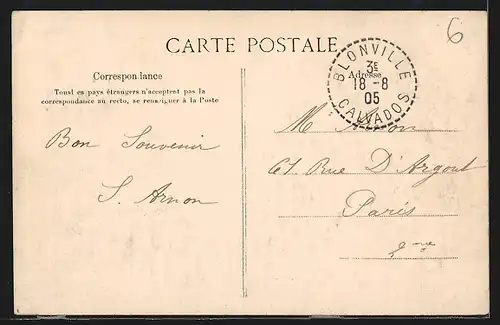 6
CARTE POSTALE
BLONVILLE
3E
18 -8
05
CALVADOS
Correspondance
Adresse
Tous les pays étrangers n'acceptent pas la
correspondance au recto, se renseigner à la Poste
Bon Souvenir
S. Arnon
M Arnon
61 Rue D'Argout
Paris
2me